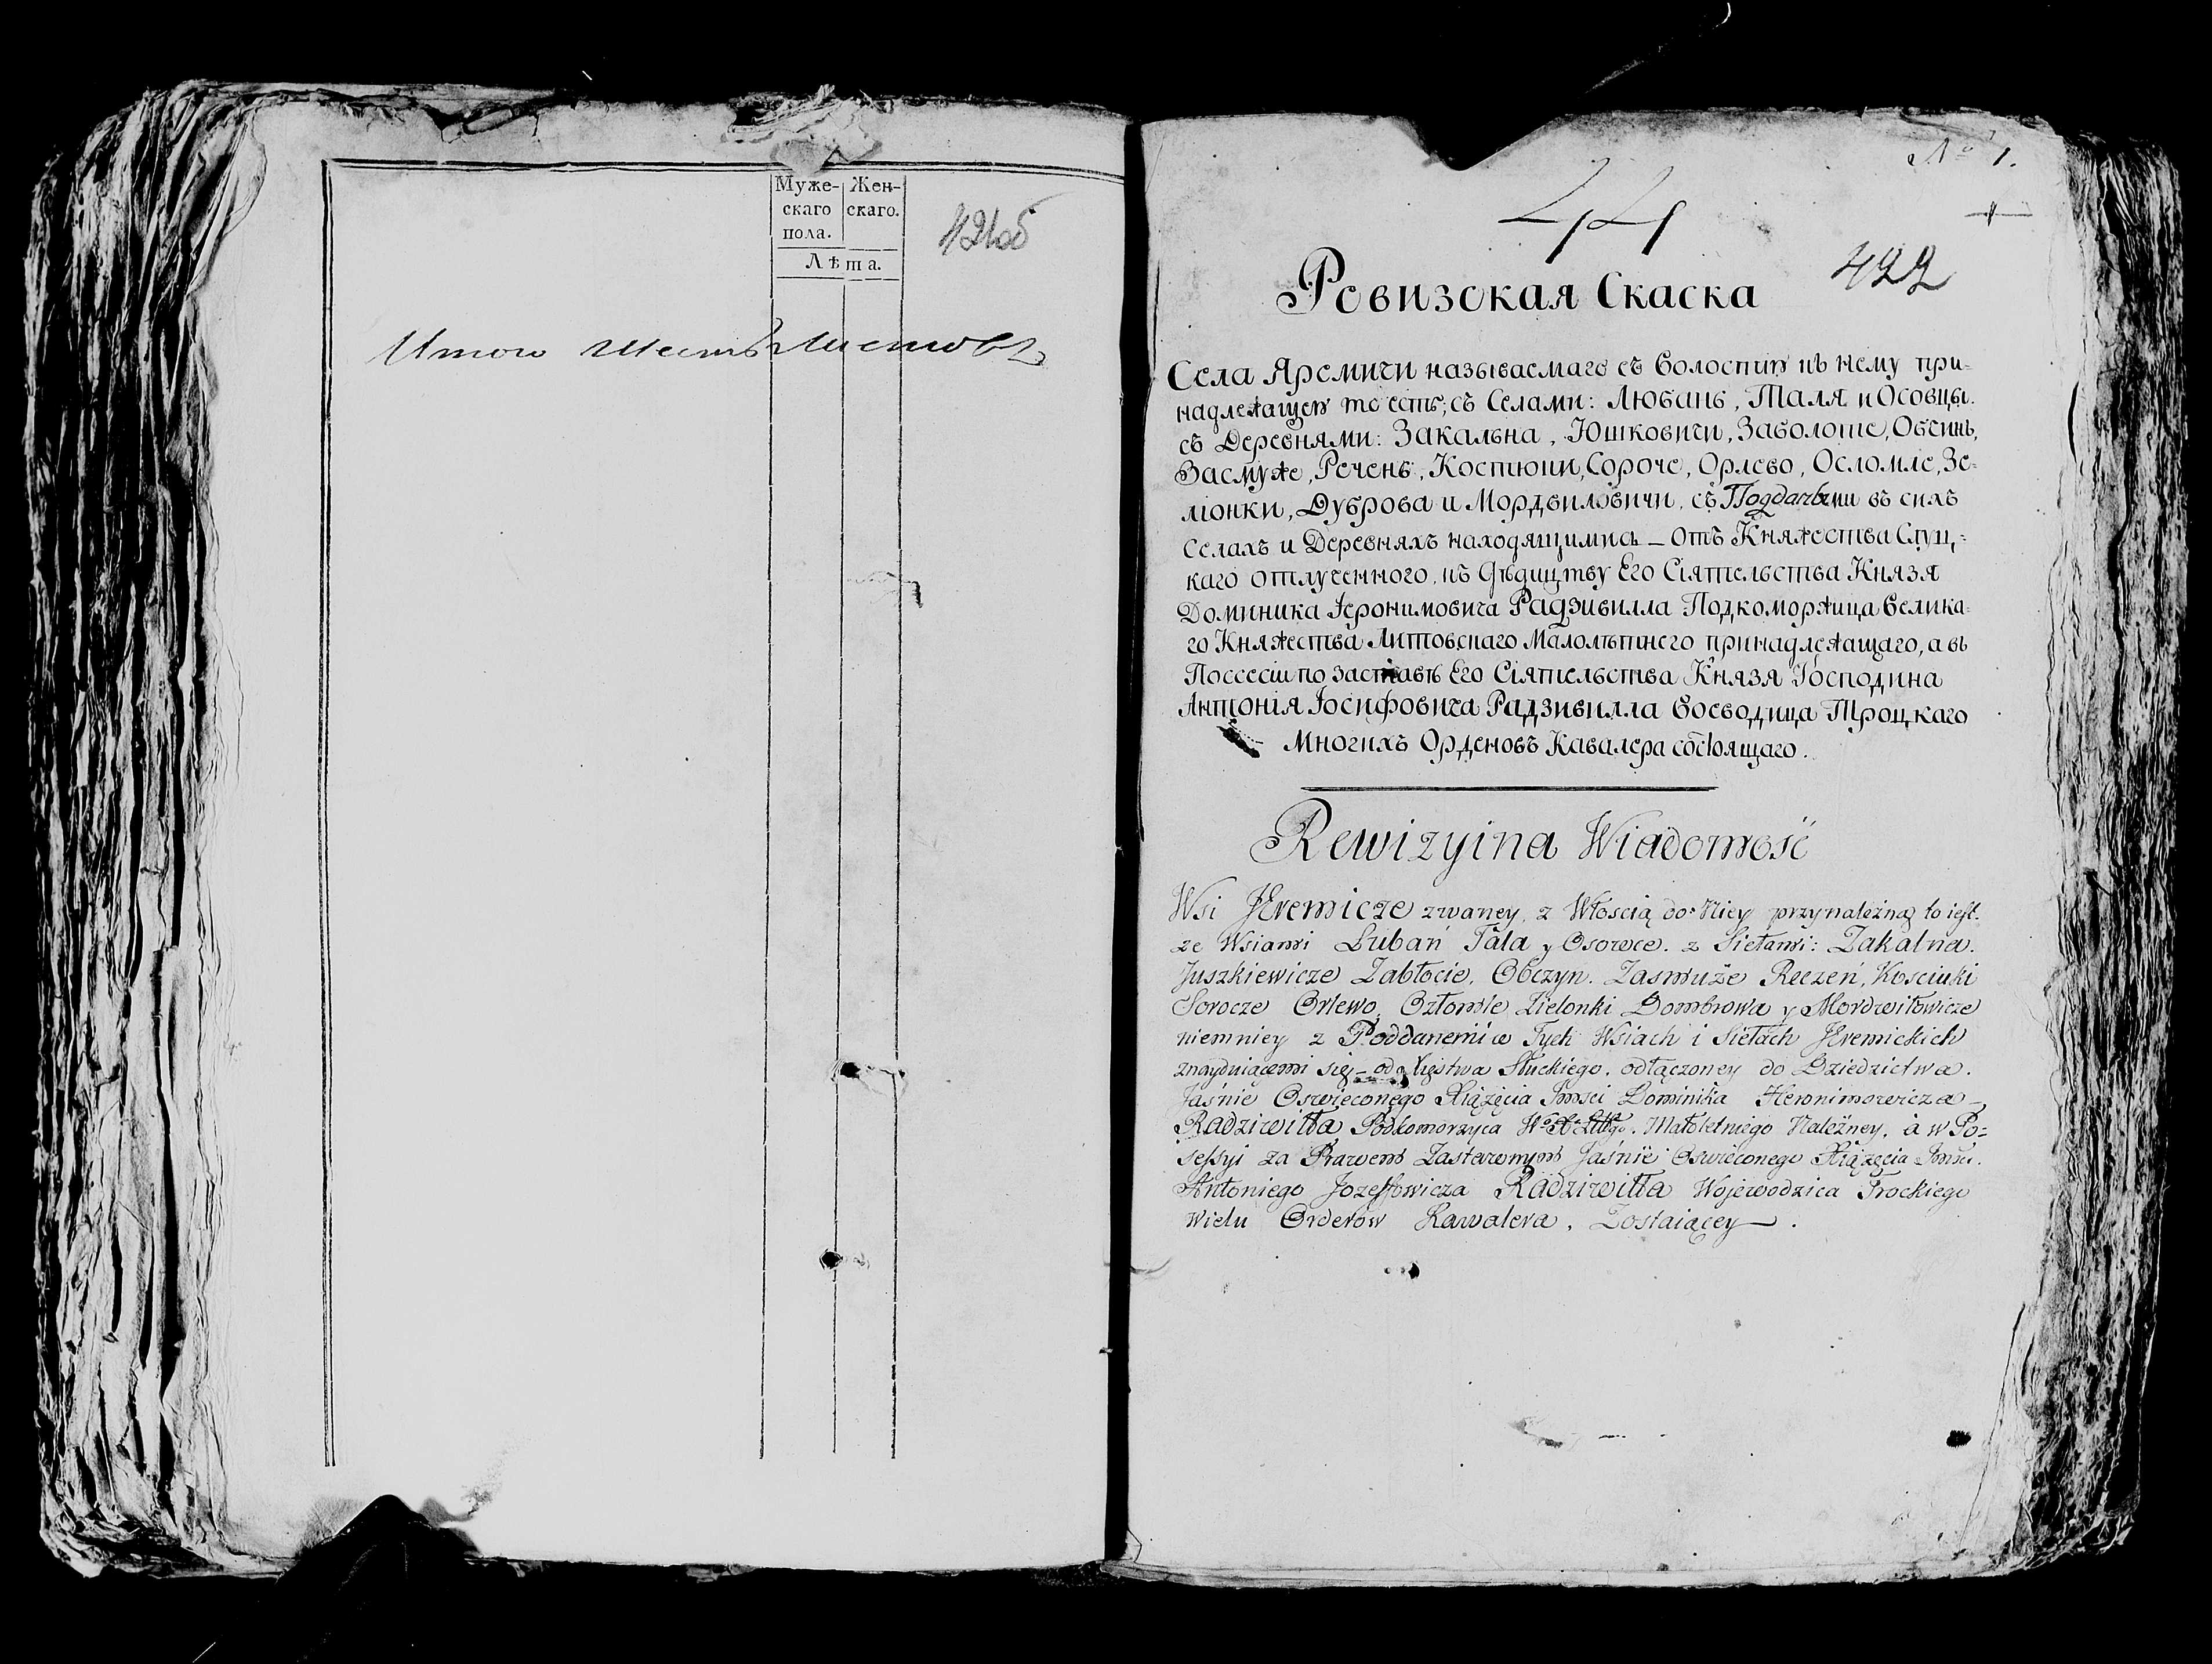 Муже-
скаго
пола.
Жен-
скаго.
Лѣта.
421об
Итого шесть листовъ
№ 1.
44
422
Ревизская Скаска
Села Яремичи называемаго съ Волостию къ нему при-
надлежащею то есть; съ Селами: Любань, Таля и Осовцы.
съ Деревнями: Закальна, Юшковичи, Заболоте, Обчинь,
Засмуже, Речень, Костюки, Сороче, Орлево, Осломле, Зе-
лïонки, Дуброва и Мордвиловичи, съ Подданными въ сихъ
Селахъ и Деревняхъ находящимись – Отъ Княжества Слуц-
каго отлученного, къ Дѣдицтву Его Сіятельства Князя
Доминика Іеронимовича Радзивилла Подкоморжица Велика-
го Княжества Литовскаго Малолѣтнего принадлежащаго, а въ
Поссесіи по заставѣ Его Сіятельства Князя Господина
Антонія Іосифовича Радзивилла Воеводица Троцкаго
Многихъ Орденовъ Кавалера состоящаго.
Rewizyina Wiadomość
Wsi JEremicze zwaney, z Włością do Niey przynależną to iest.
ze Wsiami Lubań Tala y Osowce. z Siełami: Zakalna.
Juszkiewicze Zabłocie, Obczyn. Zasmuże Reczeń, Kosciuki
Sorocze Orlewo, Ozłomle Zielonki Dombrowa y Mordwiłowicze
niemniey z Poddanemi w Tych Wsiach i Siełach JEremickich
znayduiącemi się – od Xięstwa Słuckiego, odłączoney do Dziedzictwa.
Jaśnie Oswieconego Xiążęcia Jmsci Dominika Heronimowicza –
Radziwiłła Podkomorzyca Wo Xa Littgo. Małoletniego Należney, à w Po=
sessyi za Prawem Zastawnym Jaśnie Oswieconego Xiążęcia Jmsci.
Antoniego Jozeffowicza Radziwiłła Wojewodzica Trockiego
Wielu Orderow Kawalera, Zostaiącey – .